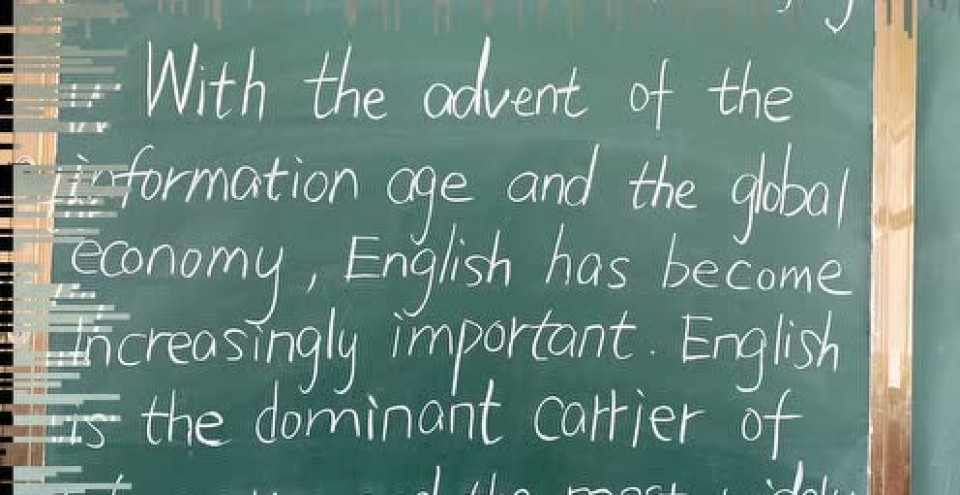 With the advent of the
information age and the global
economy, English has become
increasingly important. English
is the dominant carrier of
and the most widely